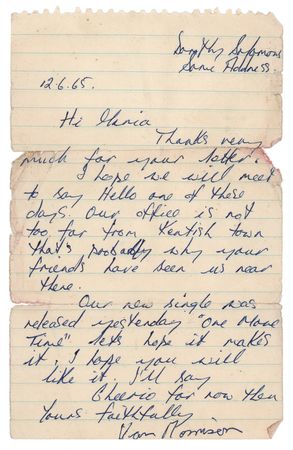 Dorothy Solomons
Same Address.
12.6.65.
Hi Maria
Thanks very
much for your letter.
I hope we will meet
to say Hello one of these
days. Our office is not
too far from Kentish town
that's probably why your
friends have been us near
there.
Our new single was
released yesterday "One More
Time" lets hope it makes
it. I hope you will
like it. I'll say
Cheerio for now then
Yours faithfully
Van Morrison